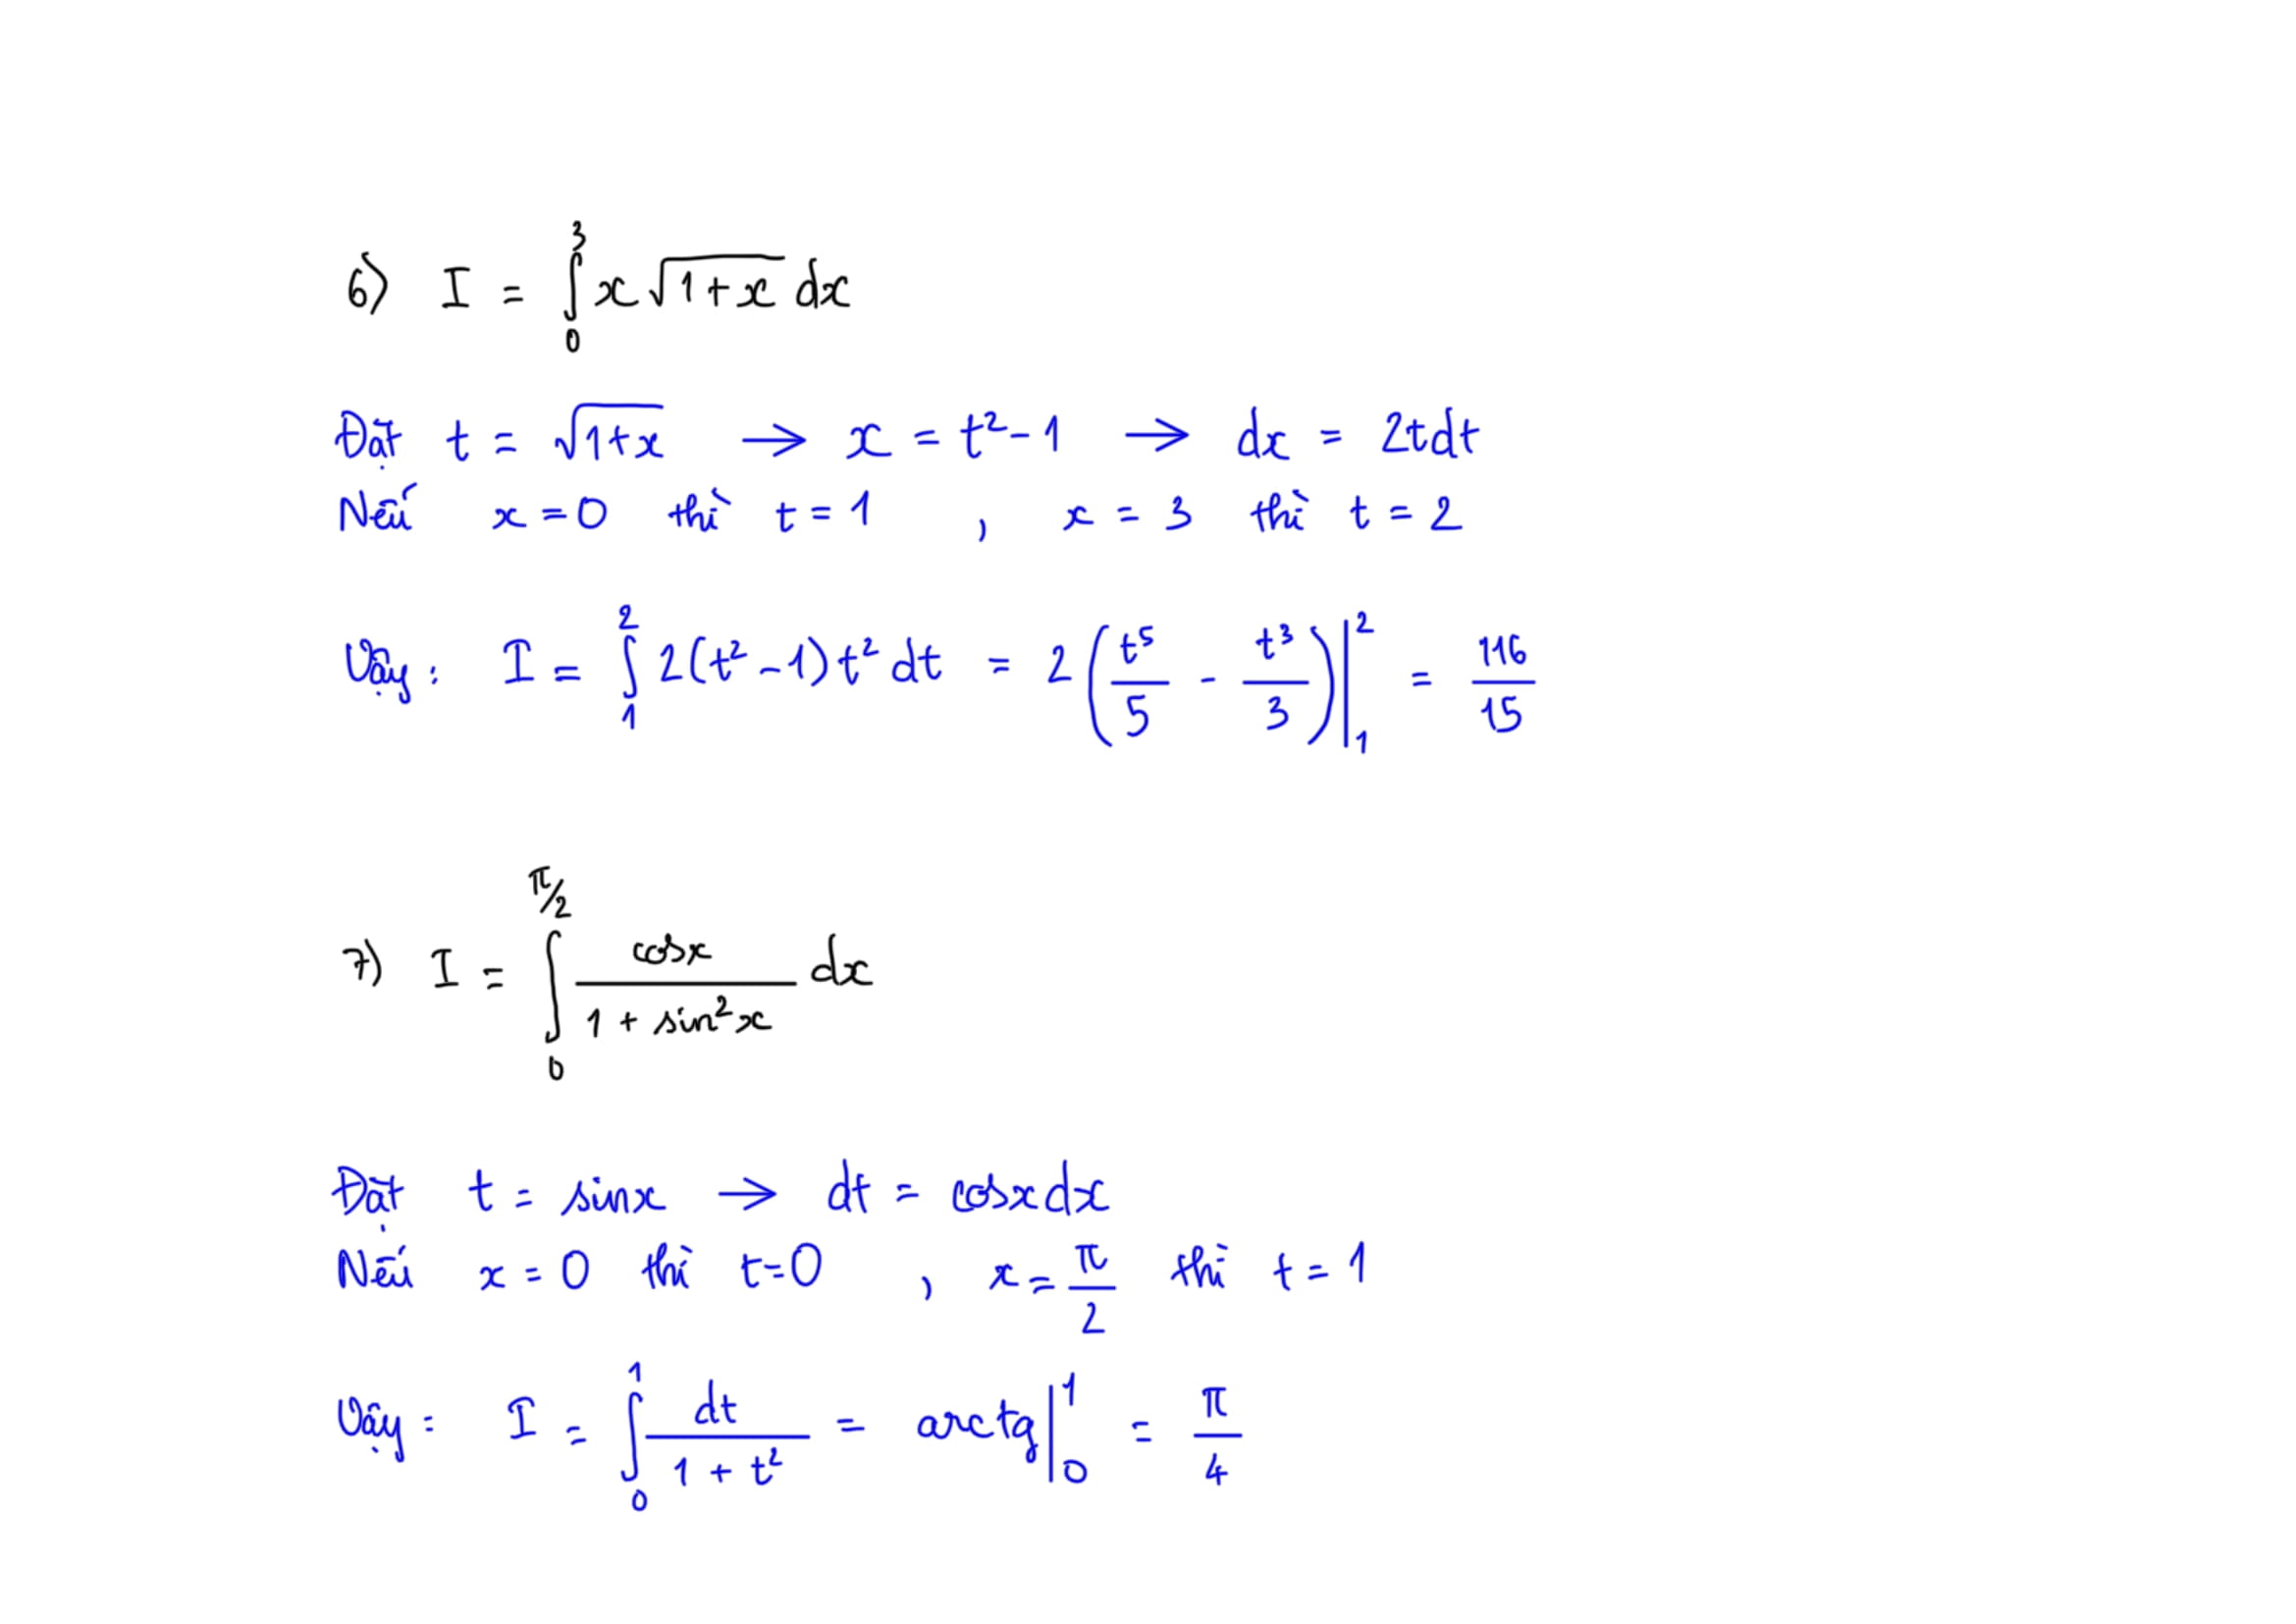 6) I = ∫₀³ x√(1+x) dx
Đặt t = √(1+x) → x = t² - 1 → dx = 2tdt
Nếu x = 0 thì t = 1 , x = 3 thì t = 2
Vậy: I = ∫₁² 2(t² - 1)t² dt = 2(t⁵/5 - t³/3)|₁² = 116/15
7) I = ∫₀^(π/2) cosx/(1 + sin²x) dx
Đặt t = sinx → dt = cosxdx
Nếu x = 0 thì t = 0 , x = π/2 thì t = 1
Vậy: I = ∫₀¹ dt/(1 + t²) = arctg|₀¹ = π/4